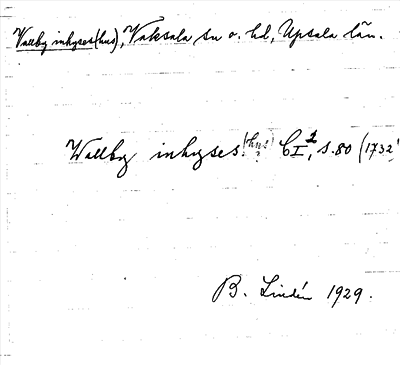 Vallby inhyses(hus), Vaksala sn o. hd, Upsala län.
Wallby inhyses (hus?) CI², s. 80 (1732)
B. Lindén 1929.